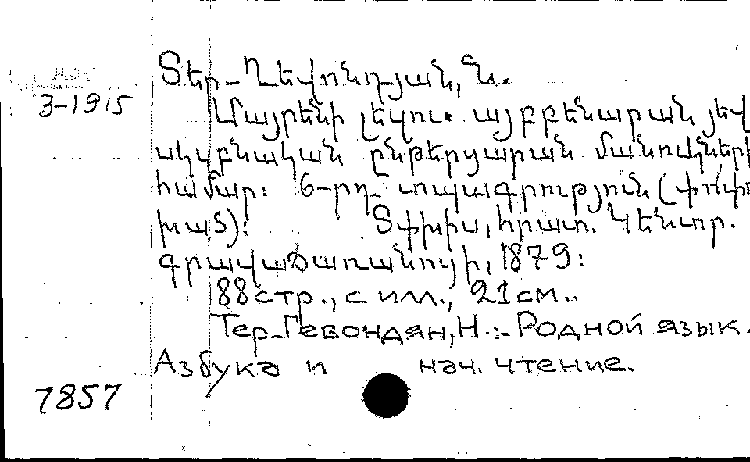 Տեր-Ղեվոնդյան, Ն.
3-1915
Մայրենի լեզու. այբբենարան յեվ
սկզբնական ընթերցարան մանուկների
համար: 6-րդ տպագրություն (փոփո
խած): Տփխիս, հրատ. Կենտր.
գրավաճառանոցի, 1879:
88 стр., с илл., 21 см..
Тер-Гевондян, Н.:- Родной язык.
Азбука и нач. чтение.
7857